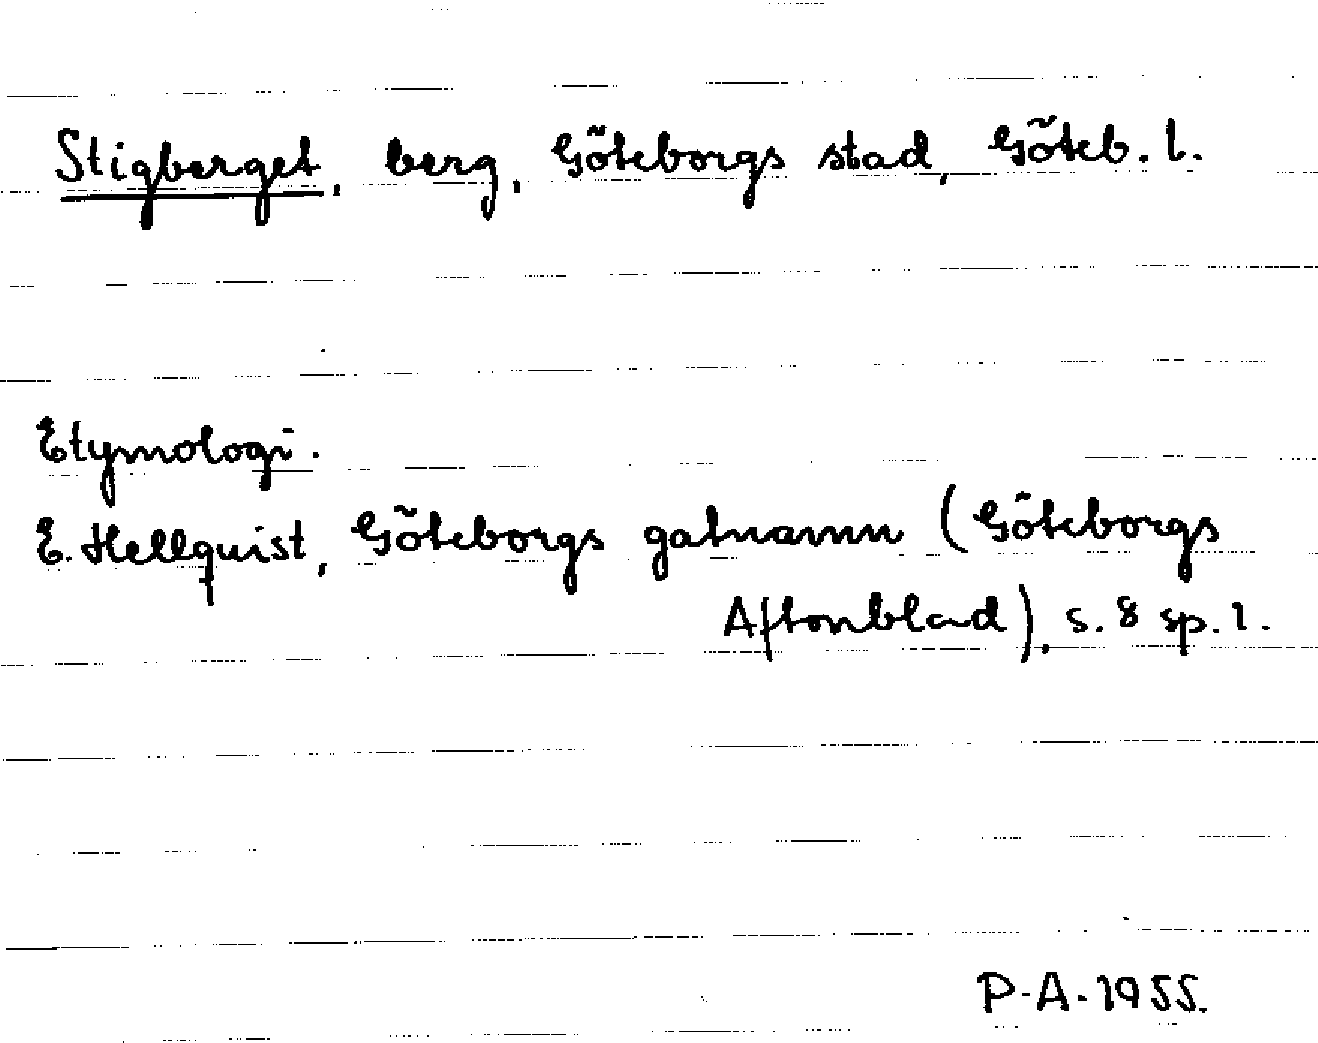 Stigberget, berg, Göteborgs stad, Göteb. l.
Etymologi.
E. Hellquist, Göteborgs gatnamn (Göteborgs
Aftonblad), s. 8 sp. 1.
P-A. 1955.